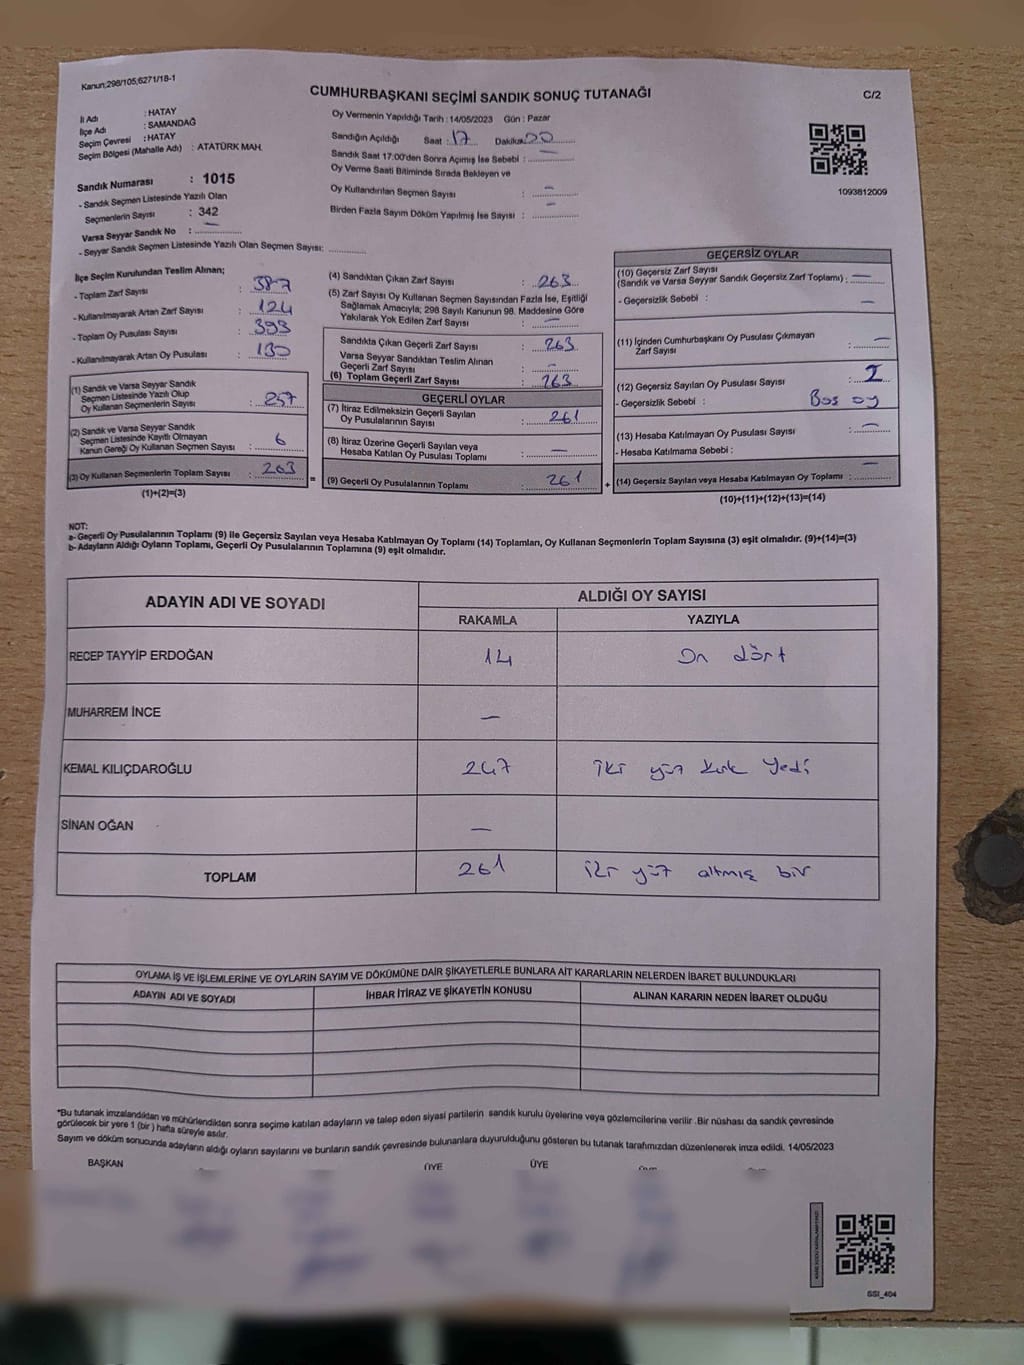 Kanun;298/105;6271/18-1
CUMHURBAŞKANI SEÇİMİ SANDIK SONUÇ TUTANAĞI
C/2
İl Adı : HATAY
İlçe Adı : SAMANDAĞ
Seçim Çevresi : HATAY
Seçim Bölgesi (Mahalle Adı) : ATATÜRK MAH.
Sandık Numarası : 1015
- Sandık Seçmen Listesinde Yazılı Olan
Seçmenlerin Sayısı : 342
Varsa Seyyar Sandık No : —
- Seyyar Sandık Seçmen Listesinde Yazılı Olan Seçmen Sayısı:
Oy Vermenin Yapıldığı Tarih : 14/05/2023 Gün : Pazar
Sandığın Açıldığı Saat : 17 Dakika: 00
Sandık Saat 17:00'den Sonra Açımış İse Sebebi : —
Oy Verme Saati Bitiminde Sırada Bekleyen ve
Oy Kullandırılan Seçmen Sayısı : —
Birden Fazla Sayım Döküm Yapılmış İse Sayısı : —
1093812009
İlçe Seçim Kurulundan Teslim Alınan;
- Toplam Zarf Sayısı : 387
- Kullanılmayarak Artan Zarf Sayısı : 124
- Toplam Oy Pusulası Sayısı : 393
- Kullanılmayarak Artan Oy Pusulası : 130
(1) Sandık ve Varsa Seyyar Sandık
Seçmen Listesinde Yazılı Olup
Oy Kullanan Seçmenlerin Sayısı : 257
(2) Sandık ve Varsa Seyyar Sandık
Seçmen Listesinde Kayıtlı Olmayan
Kanun Gereği Oy Kullanan Seçmen Sayısı : 6
(3) Oy Kullanan Seçmenlerin Toplam Sayısı : 263
(1)+(2)=(3)
=
(4) Sandıktan Çıkan Zarf Sayısı : 263
(5) Zarf Sayısı Oy Kullanan Seçmen Sayısından Fazla İse, Eşitliği
Sağlamak Amacıyla; 298 Sayılı Kanunun 98. Maddesine Göre
Yakılarak Yok Edilen Zarf Sayısı : —
Sandıkta Çıkan Geçerli Zarf Sayısı : 263
Varsa Seyyar Sandıktan Teslim Alınan
Geçerli Zarf Sayısı : —
(6) Toplam Geçerli Zarf Sayısı : 263
GEÇERLİ OYLAR
(7) İtiraz Edilmeksizin Geçerli Sayılan
Oy Pusulasının Sayısı : 261
(8) İtiraz Üzerine Geçerli Sayılan veya
Hesaba Katılan Oy Pusulası Toplamı : —
(9) Geçerli Oy Pusulalarının Toplamı : 261
+
GEÇERSİZ OYLAR
(10) Geçersiz Zarf Sayısı
(Sandık ve Varsa Seyyar Sandık Geçersiz Zarf Toplamı) : —
- Geçersizlik Sebebi : —
(11) İçinden Cumhurbaşkanı Oy Pusulası Çıkmayan
Zarf Sayısı : —
(12) Geçersiz Sayılan Oy Pusulası Sayısı :
- Geçersizlik Sebebi : Boş oy
(13) Hesaba Katılmayan Oy Pusulası Sayısı : —
- Hesaba Katılmama Sebebi :
(14) Geçersiz Sayılan veya Hesaba Katılmayan Oy Toplamı : —
(10)+(11)+(12)+(13)=(14)
NOT:
a- Geçerli Oy Pusulalarının Toplamı (9) ile Geçersiz Sayılan veya Hesaba Katılmayan Oy Toplamı (14) Toplamları, Oy Kullanan Seçmenlerin Toplam Sayısına (3) eşit olmalıdır. (9)+(14)=(3)
b- Adayların Aldığı Oyların Toplamı, Geçerli Oy Pusulalarının Toplamına (9) eşit olmalıdır.
ADAYIN ADI VE SOYADI
ALDIĞI OY SAYISI
RAKAMLA
YAZIYLA
RECEP TAYYİP ERDOĞAN 14 On dört
MUHARREM İNCE —
KEMAL KILIÇDAROĞLU 247 iki yüz kırk yedi
SİNAN OĞAN —
TOPLAM 261 iki yüz altmış bir
OYLAMA İŞ VE İŞLEMLERİNE VE OYLARIN SAYIM VE DÖKÜMÜNE DAİR ŞİKAYETLERLE BUNLARA AİT KARARLARIN NELERDEN İBARET BULUNDUKLARI
ADAYIN ADI VE SOYADI
İHBAR İTİRAZ VE ŞİKAYETİN KONUSU
ALINAN KARARIN NEDEN İBARET OLDUĞU
*Bu tutanak imzalandıktan ve mühürlendikten sonra seçime katılan adayların ve talep eden siyasi partilerin sandık kurulu üyelerine veya gözlemcilerine verilir .Bir nüshası da sandık çevresinde
görülecek bir yere 1 (bir) hafta süreyle asılır.
Sayım ve döküm sonucunda adayların aldığı oyların sayılarını ve bunların sandık çevresinde bulunanlara duyurulduğunu gösteren bu tutanak tarafımızdan düzenlenerek imza edildi. 14/05/2023
BAŞKAN ÜYE ÜYE
GSI_404